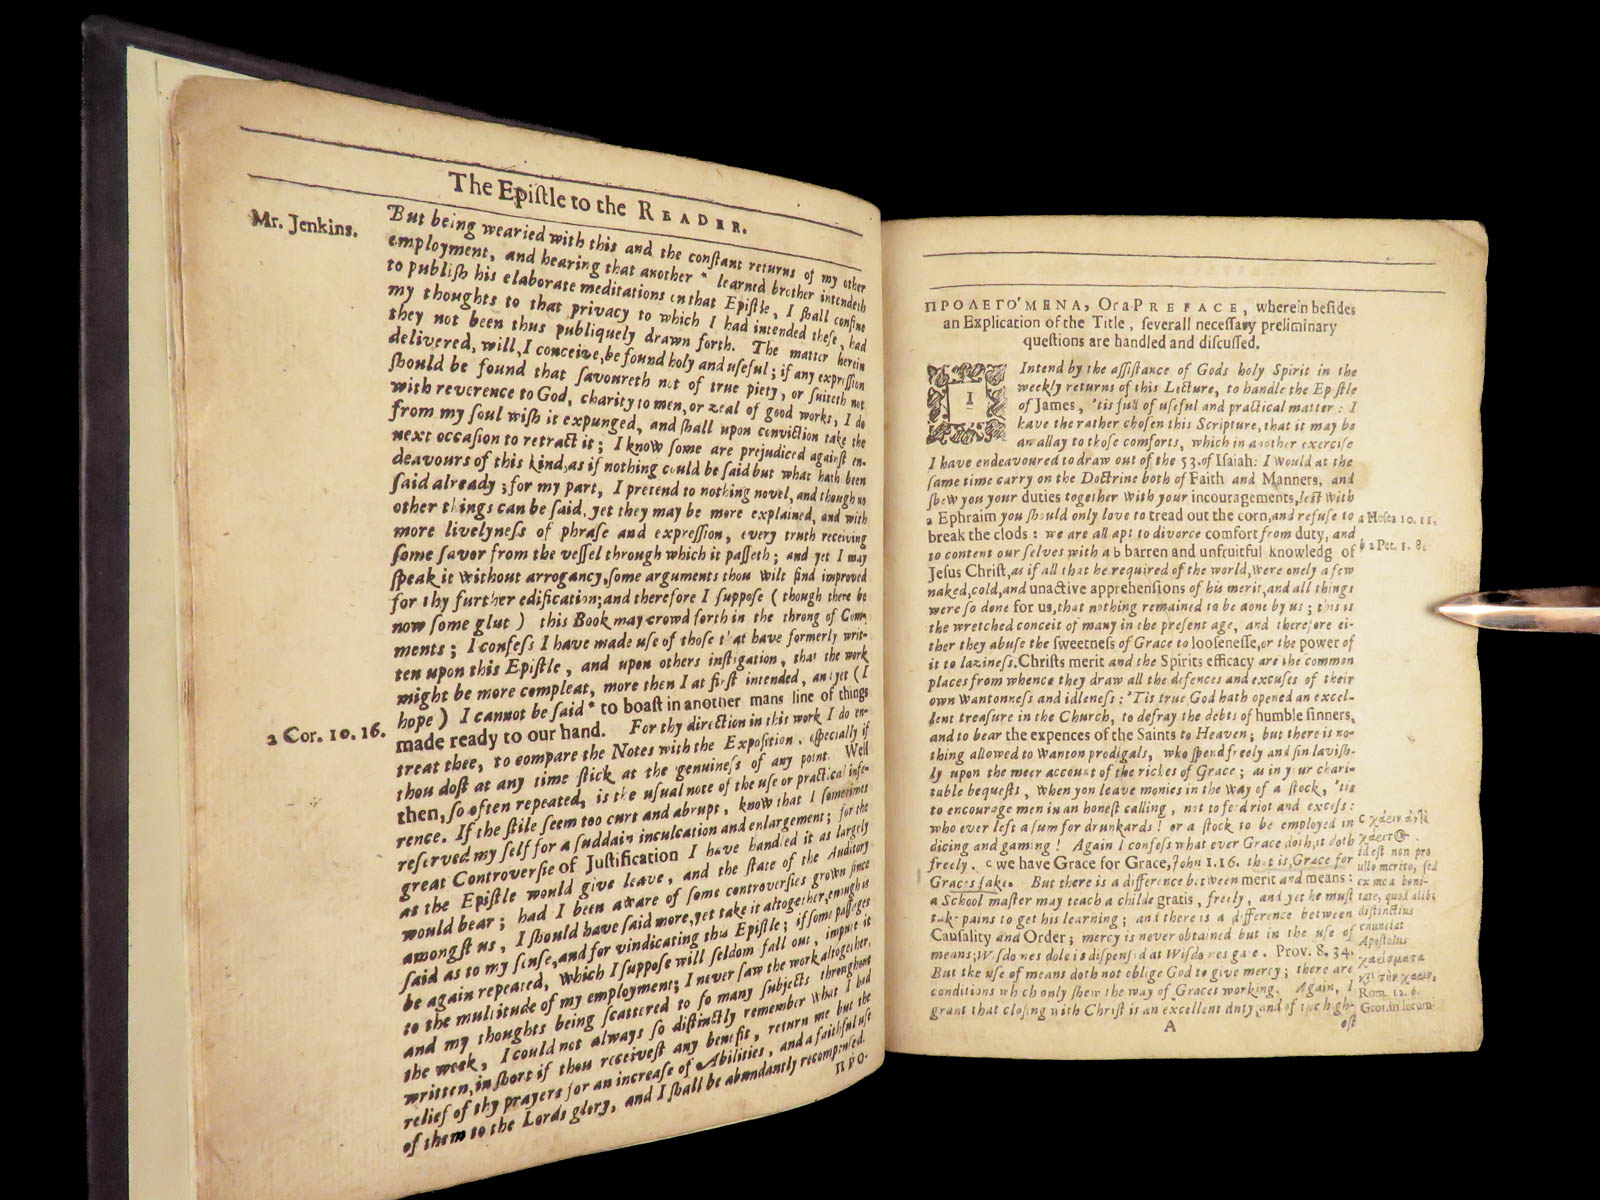 The Epiſtle to the READER.
Mr. Jenkins.
But being wearied with this and the conſtant returns of my other
employment, and hearing that another * learned brother intendeth
to publiſh his elaborate meditations on that Epiſtle, I ſhall confine
my thoughts to that privacy to which I had intended theſe, had
they not been thus publiquely drawn forth. The matter herein
delivered, will, I conceive, be found holy and uſeful; if any expreſſion
ſhould be found that ſavoureth not of true piety, or ſuiteth not
with reverence to God, charity to men, or zeal of good works, I do
from my ſoul wiſh it expunged, and ſhall upon conviction take the
next occaſion to retract it; I know ſome are prejudiced againſt en-
deavours of this kind, as if nothing could be ſaid but what hath been
ſaid already; for my part, I pretend to nothing novel, and though no
other things can be ſaid, yet they may be more explained, and with
more livelyneſs of phraſe and expreſſion, every truth receiving
ſome ſavor from the veſſel through which it paſſeth; and yet I may
ſpeak it without arrogancy, ſome arguments thou wilt find improved
for thy further edification; and therefore I ſuppoſe ( though there be
now ſome glut ) this Book may crowd forth in the throng of Com-
ments; I confeſs I have made uſe of thoſe that have formerly writ-
ten upon this Epiſtle, and upon others inſtigation, that the work
might be more compleat, more then I at firſt intended, and yet ( I
hope ) I cannot be ſaid * to boaſt in another mans line of things
2 Cor. 10. 16.
made ready to our hand. For thy direction in this work I do en-
treat thee, to compare the Notes with the Expoſition, eſpecially if
thou doſt at any time ſtick at the genuineſs of any point. Well
then, ſo often repeated, is the uſual note of the uſe or practical infe-
rence. If the ſtile ſeem too curt and abrupt, know that I ſometimes
reſerved my ſelf for a ſuddain inculcation and enlargement; for the
great Controverſie of Juſtification I have handled it as largely
as the Epiſtle would give leave, and the ſtate of the Auditory
would bear; had I been aware of ſome controverſies grown ſince
amongſt us, I ſhould have ſaid more, yet take it altogether, enough is
ſaid as to my ſenſe, and for vindicating this Epiſtle; if ſome paſſages
be again repeated, which I ſuppoſe will ſeldom fall out, impute it
to the multitude of my employment; I never ſaw the work altogether,
and my thoughts being ſcattered to ſo many ſubjects throughout
the week, I could not always ſo diſtinctly remember what I had
written, in ſhort if thou receiveſt any benefit, return me but the
relief of thy prayers for an increaſe of Abilities, and a faithful uſe
of them to the Lords glory, and I ſhall be abundantly recompenſed.
ΠΡΟ-
ΠΡΟΛΕΓΟ'ΜΕΝΑ, Or a PREFACE, wherein beſides
an Explication of the Title, ſeverall neceſſary preliminary
queſtions are handled and diſcuſſed.
I Intend by the aſſiſtance of Gods holy Spirit in the
weekly returns of this Lecture, to handle the Epiſtle
of James, 'tis full of uſeful and practical matter: I
have the rather choſen this Scripture, that it may be
an allay to thoſe comforts, which in another exerciſe
I have endeavoured to draw out of the 53. of Iſaiah: I would at the
ſame time carry on the Doctrine both of Faith and Manners, and
ſhew you your duties together with your incouragements, leſt with
a Ephraim you ſhould only love to tread out the corn, and refuſe to
a Hoſea 10. 11.
break the clods: we are all apt to divorce comfort from duty, and
to content our ſelves with a b barren and unfruitful knowledg of
b 2 Pet. 1. 8.
Jeſus Chriſt, as if all that he required of the world, were onely a few
naked, cold, and unactive apprehenſions of his merit, and all things
were ſo done for us, that nothing remained to be done by us; this is
the wretched conceit of many in the preſent age, and therefore ei-
ther they abuſe the ſweetneſs of Grace to looſeneſſe, or the power of
it to lazineſs. Chriſts merit and the Spirits efficacy are the common
places from whence they draw all the defences and excuſes of their
own wantonneſs and idleneſs: 'Tis true, God hath opened an excel-
lent treaſure in the Church, to defray the debts of humble ſinners,
and to bear the expences of the Saints to Heaven; but there is no-
thing allowed to wanton prodigals, who ſpend freely and ſin laviſh-
ly upon the meer account of the riches of Grace; as in your chari-
table bequeſts, when you leave monies in the way of a ſtock, 'tis
to encourage men in an honeſt calling, not to feed riot and exceſs:
who ever left a ſum for drunkards! or a ſtock to be employed in
dicing and gaming! Again I confeſs what ever Grace doth, it doth
freely. c we have Grace for Grace, John 1.16. that is, Grace for
Graces ſake. But there is a difference between merit and means:
a School maſter may teach a childe gratis, freely, and yet he muſt
take pains to get his learning; and there is a difference between
Cauſality and Order; mercy is never obtained but in the uſe of
means; Wiſdomes dole is diſpenſed at Wiſdomes gate. Prov. 8. 34.
But the uſe of means doth not oblige God to give mercy; there are
conditions which only ſhew the way of Graces working. Again, I
grant that cloſing with Chriſt is an excellent duty, and of the high-
c χάριν ἀντὶ
χάριτος
id eſt non pro
ullo merito, ſed
ex mea boni-
tate, quod alibi
diſtinctius
enunciat
Apoſtolus
χαρίσματα
κατὰ τὴν χάριν,
Rom. 12. 6.
Grot. in locum.
A
eſt